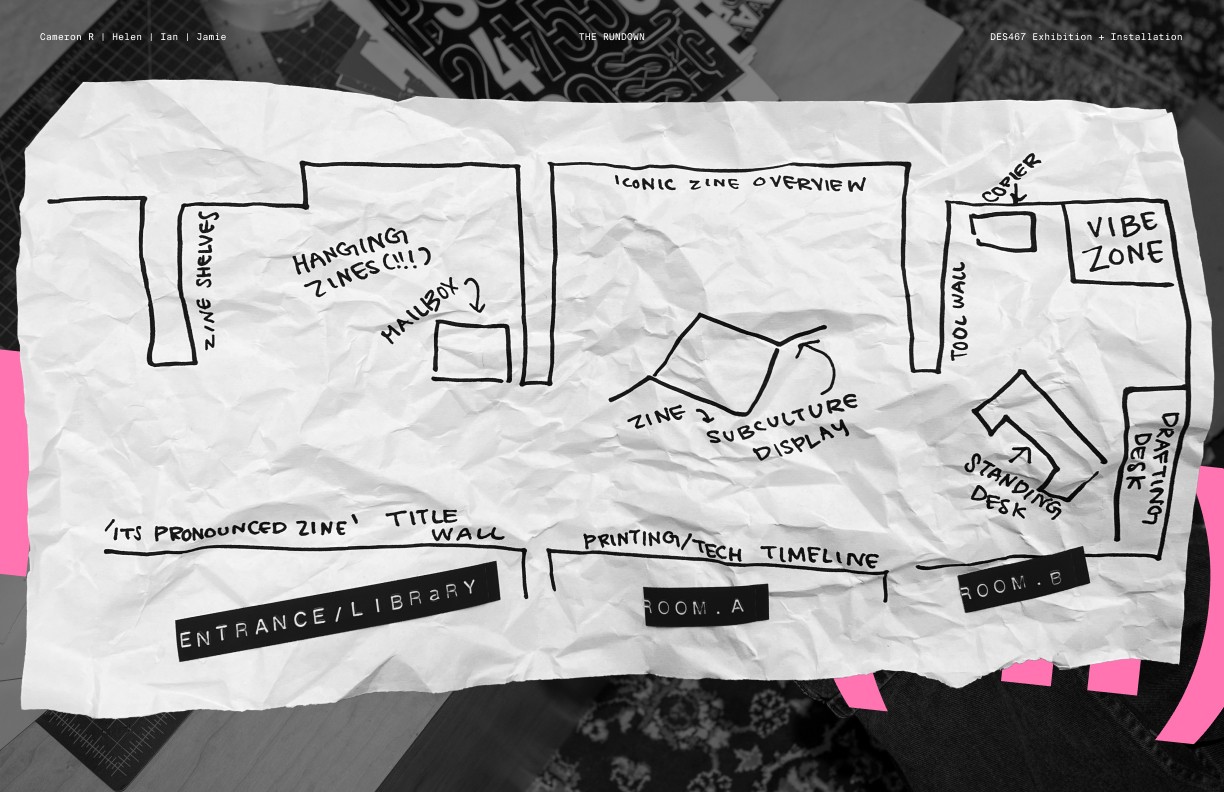 Cameron R | Helen | Ian | Jamie
THE RUNDOWN
DES467 Exhibition + Installation
24
ZINE SHELVES
HANGING
ZINES (!!!)
MAILBOX
ICONIC ZINE OVERVIEW
ZINE
SUBCULTURE
DISPLAY
COPIER
VIBE
ZONE
TOOL WALL
STANDING
DESK
DRAFTING
DESK
'ITS PRONOUNCED ZINE' TITLE
WALL
PRINTING/TECH TIMELINE
ENTRANCE/LIBRaRY
ROOM.A
ROOM.B